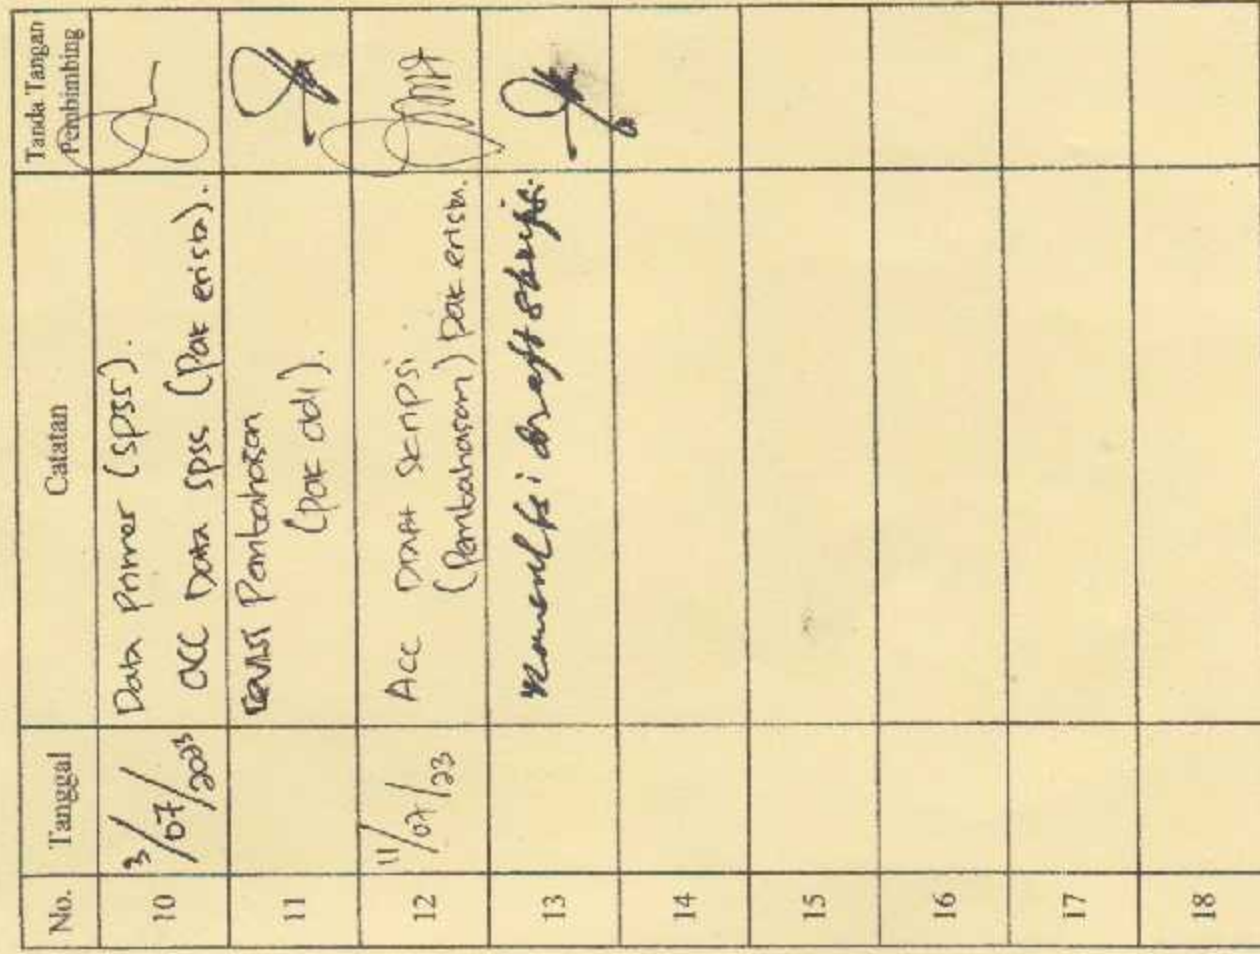 No. Tanggal Catatan Tanda Tangan
Pembimbing
10 3/07/2023 Data Primer (SPSS).
ACC Data SPSS (Pak erista).
11 Revisi Pembahasan
(pak adi).
12 11/07/23 ACC Draft Skripsi
(Pembahasan) pak erista.
13 draft skripsi.
14
15
16
17
18